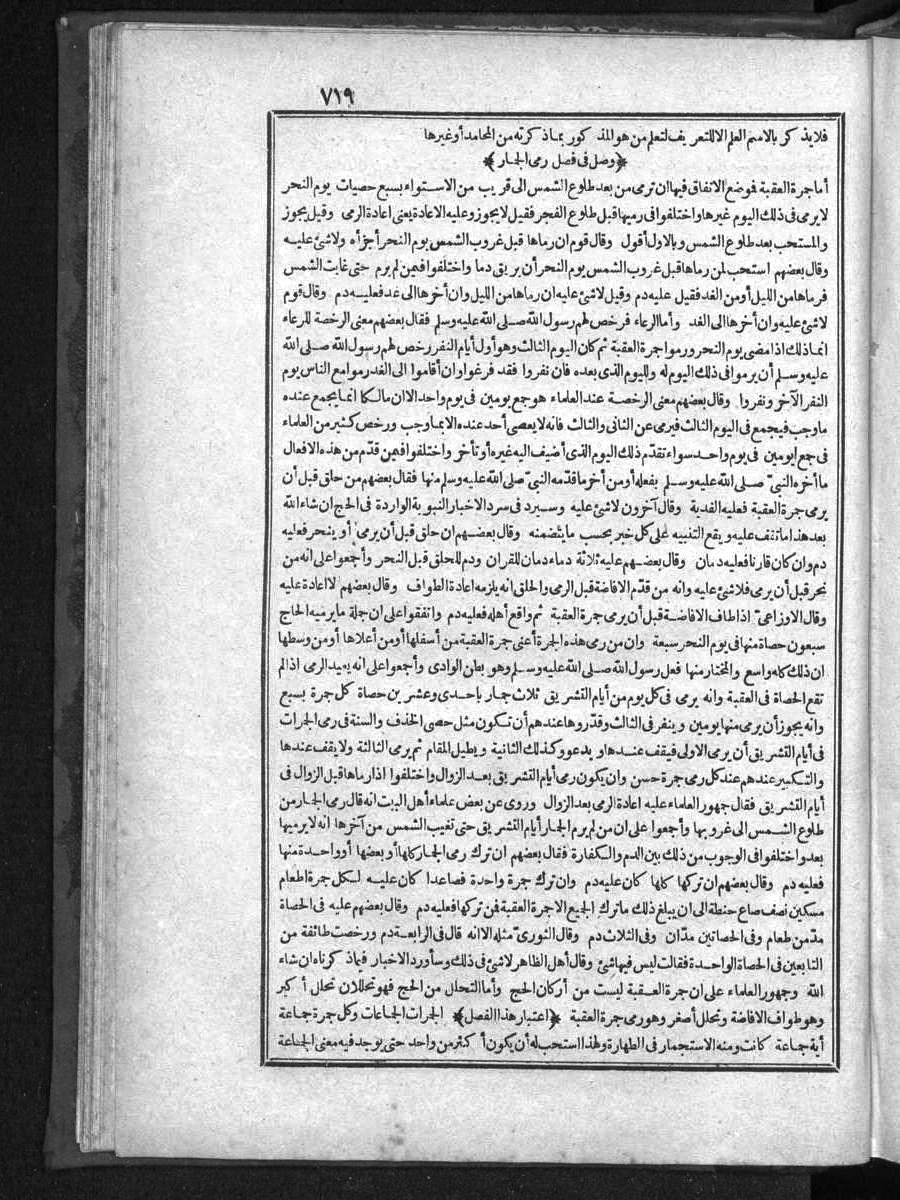 ٧١٩
فلا يذكر بالاسم العلم الا للتعريف لتعلم من هو المذكور بما ذكرته من المحامد أو غيرها
﴿وصل في فصل رمى الجمار﴾
أما جمرة العقبة فوضع الاتفاق فيها ان ترمى من بعد طلوع الشمس الى قريب من الاستواء بسبع حصيات يوم النحر
لا يرمى في ذلك اليوم غيرها واختلفوا في رميها قبل طلوع الفجر فقيل لا يجوز وعليه الاعادة يعنى اعادة الرمى وقيل يجوز
والمستحب بعد طلوع الشمس وبالاول أقول وقال قوم ان رماها قبل غروب الشمس يوم النحر أجزأه ولا شئ عليه
وقال بعضهم استحب لمن رماها قبل غروب الشمس يوم النحر أن يريق دما واختلفوا فيمن لم يرم حتى غابت الشمس
فرماها من الليل أو من الغد فقيل عليه دم وقيل لا شئ عليه ان رماها من الليل وان أخرها الى غد فعليه دم وقال قوم
لا شئ عليه وان أخرها الى الغد وأما الرعاء فرخص لهم رسول الله صلى الله عليه وسلم فقال بعضهم معنى الرخصة للرعاء
انما ذلك اذا مضى يوم النحر ورموا جمرة العقبة ثم كان اليوم الثالث وهو أول أيام النفر رخص لهم رسول الله صلى الله
عليه وسلم أن يرموا في ذلك اليوم له ولليوم الذى بعده فان نفروا فقد فرغوا وان أقاموا الى الغد رموا مع الناس يوم
النفر الآخر ونفروا وقال بعضهم معنى الرخصة عند العلماء هو جمع يومين في يوم واحد الا ان مالكا انما يجمع عنده
ما وجب فيجمع في اليوم الثالث فيرمى عن الثانى والثالث فانه لا يعصى أحد عنده الا بما وجب ورخص كثير من العلماء
في جمع ايومين في يوم واحد سواء تقدّم ذلك اليوم الذى أضيف اليه غيره أو تأخر واختلفوا فيمن قدّم من هذه الافعال
ما أخره النبىّ صلى الله عليه وسلم بفعله أو من أخر ما قدّمه النبىّ صلى الله عليه وسلم منها فقال بعضهم من حلق قبل أن
يرمى جمرة العقبة فعليه الفدية وقال آخرون لا شئ عليه وسيرد في سرد الاخبار النبوية الواردة في الحج ان شاء الله
بعد هذا ما تقف عليه ويقع التنبيه على كل خبر بحسب ما يتضمنه وقال بعضهم ان حلق قبل أن يرمى أو ينحر فعليه
دم وان كان قارنا فعليه دمان وقال بعضهم عليه ثلاثة دماء دمان للقران ودم للحلق قبل النحر وأجمعوا على انه من
نحر قبل أن يرمى فلا شئ عليه وانه من قدّم الافاضة قبل الرمى والحلق انه يلزمه اعادة الطواف وقال بعضهم لا اعادة عليه
وقال الاوزاعىّ اذا طاف الافاضة قبل أن يرمى جمرة العقبة ثم واقع أهله فعليه دم واتفقوا على ان جملة ما يرميه الحاج
سبعون حصاة منها في يوم النحر سبعة وان من رمى هذه الجمرة أعنى جمرة العقبة من أسفلها أو من أعلاها أو من وسطها
ان ذلك كله واسع والمختار منها فعل رسول الله صلى الله عليه وسلم وهو بطن الوادى وأجمعوا على انه يعيد الرمى اذا لم
تقع الحصاة في العقبة وانه يرمى في كل يوم من أيام التشريق ثلاث جمار باحدى وعشرين حصاة كل جمرة بسبع
وانه يجوز أن يرمى منها يومين وينفر في الثالث وقدّروها عندهم أن تكون مثل حصى الخذف والسنة في رمى الجمرات
في أيام التشريق أن يرمى الاولى فيقف عندها ويدعو وكذلك الثانية ويطيل المقام ثم يرمى الثالثة ولا يقف عندها
والتكبير عندهم عند كل رمى جمرة حسن وان يكون رمى أيام التشريق بعد الزوال واختلفوا اذا رماها قبل الزوال في
أيام التشريق فقال جمهور العلماء عليه اعادة الرمى بعد الزوال وروى عن بعض علماء أهل البيت انه قال رمى الجمار من
طلوع الشمس الى غروبها وأجمعوا على ان من لم يرم الجمار أيام التشريق حتى تغيب الشمس من آخرها انه لا يرميها
بعد واختلفوا في الوجوب من ذلك بين الدم والكفارة فقال بعضهم ان ترك رمى الجمار كلها أو بعضها أو واحدة منها
فعليه دم وقال بعضهم ان تركها كلها كان عليه دم وان ترك جمرة واحدة فصاعدا كان عليه لكل جمرة اطعام
مسكين نصف صاع حنطة الى ان يبلغ ذلك ما ترك الجميع الا جمرة العقبة فمن تركها فعليه دم وقال بعضهم عليه في الحصاة
مدّ من طعام وفى الحصاتين مدّان وفى الثلاث دم وقال الثورىّ مثله الا انه قال في الرابعة دم ورخصت طائفة من
التابعين في الحصاة الواحدة فقالت ليس فيها شئ وقال أهل الظاهر لا شئ في ذلك وسأورد الاخبار فيما ذكرناه ان شاء
الله وجمهور العلماء على ان جمرة العقبة ليست من أركان الحج وأما التحلل من الحج فهو تحللان تحلل أكبر
وهو طواف الافاضة وتحلل أصغر وهو رمى جمرة العقبة ﴿اعتبار هذا الفصل﴾ الجمرات الجماعات وكل جمرة جماعة
أية جماعة كانت ومنه الاستجمار في الطهارة ولهذا استحب له أن يكون أكثر من واحد حتى يوجد فيه معنى الجماعة